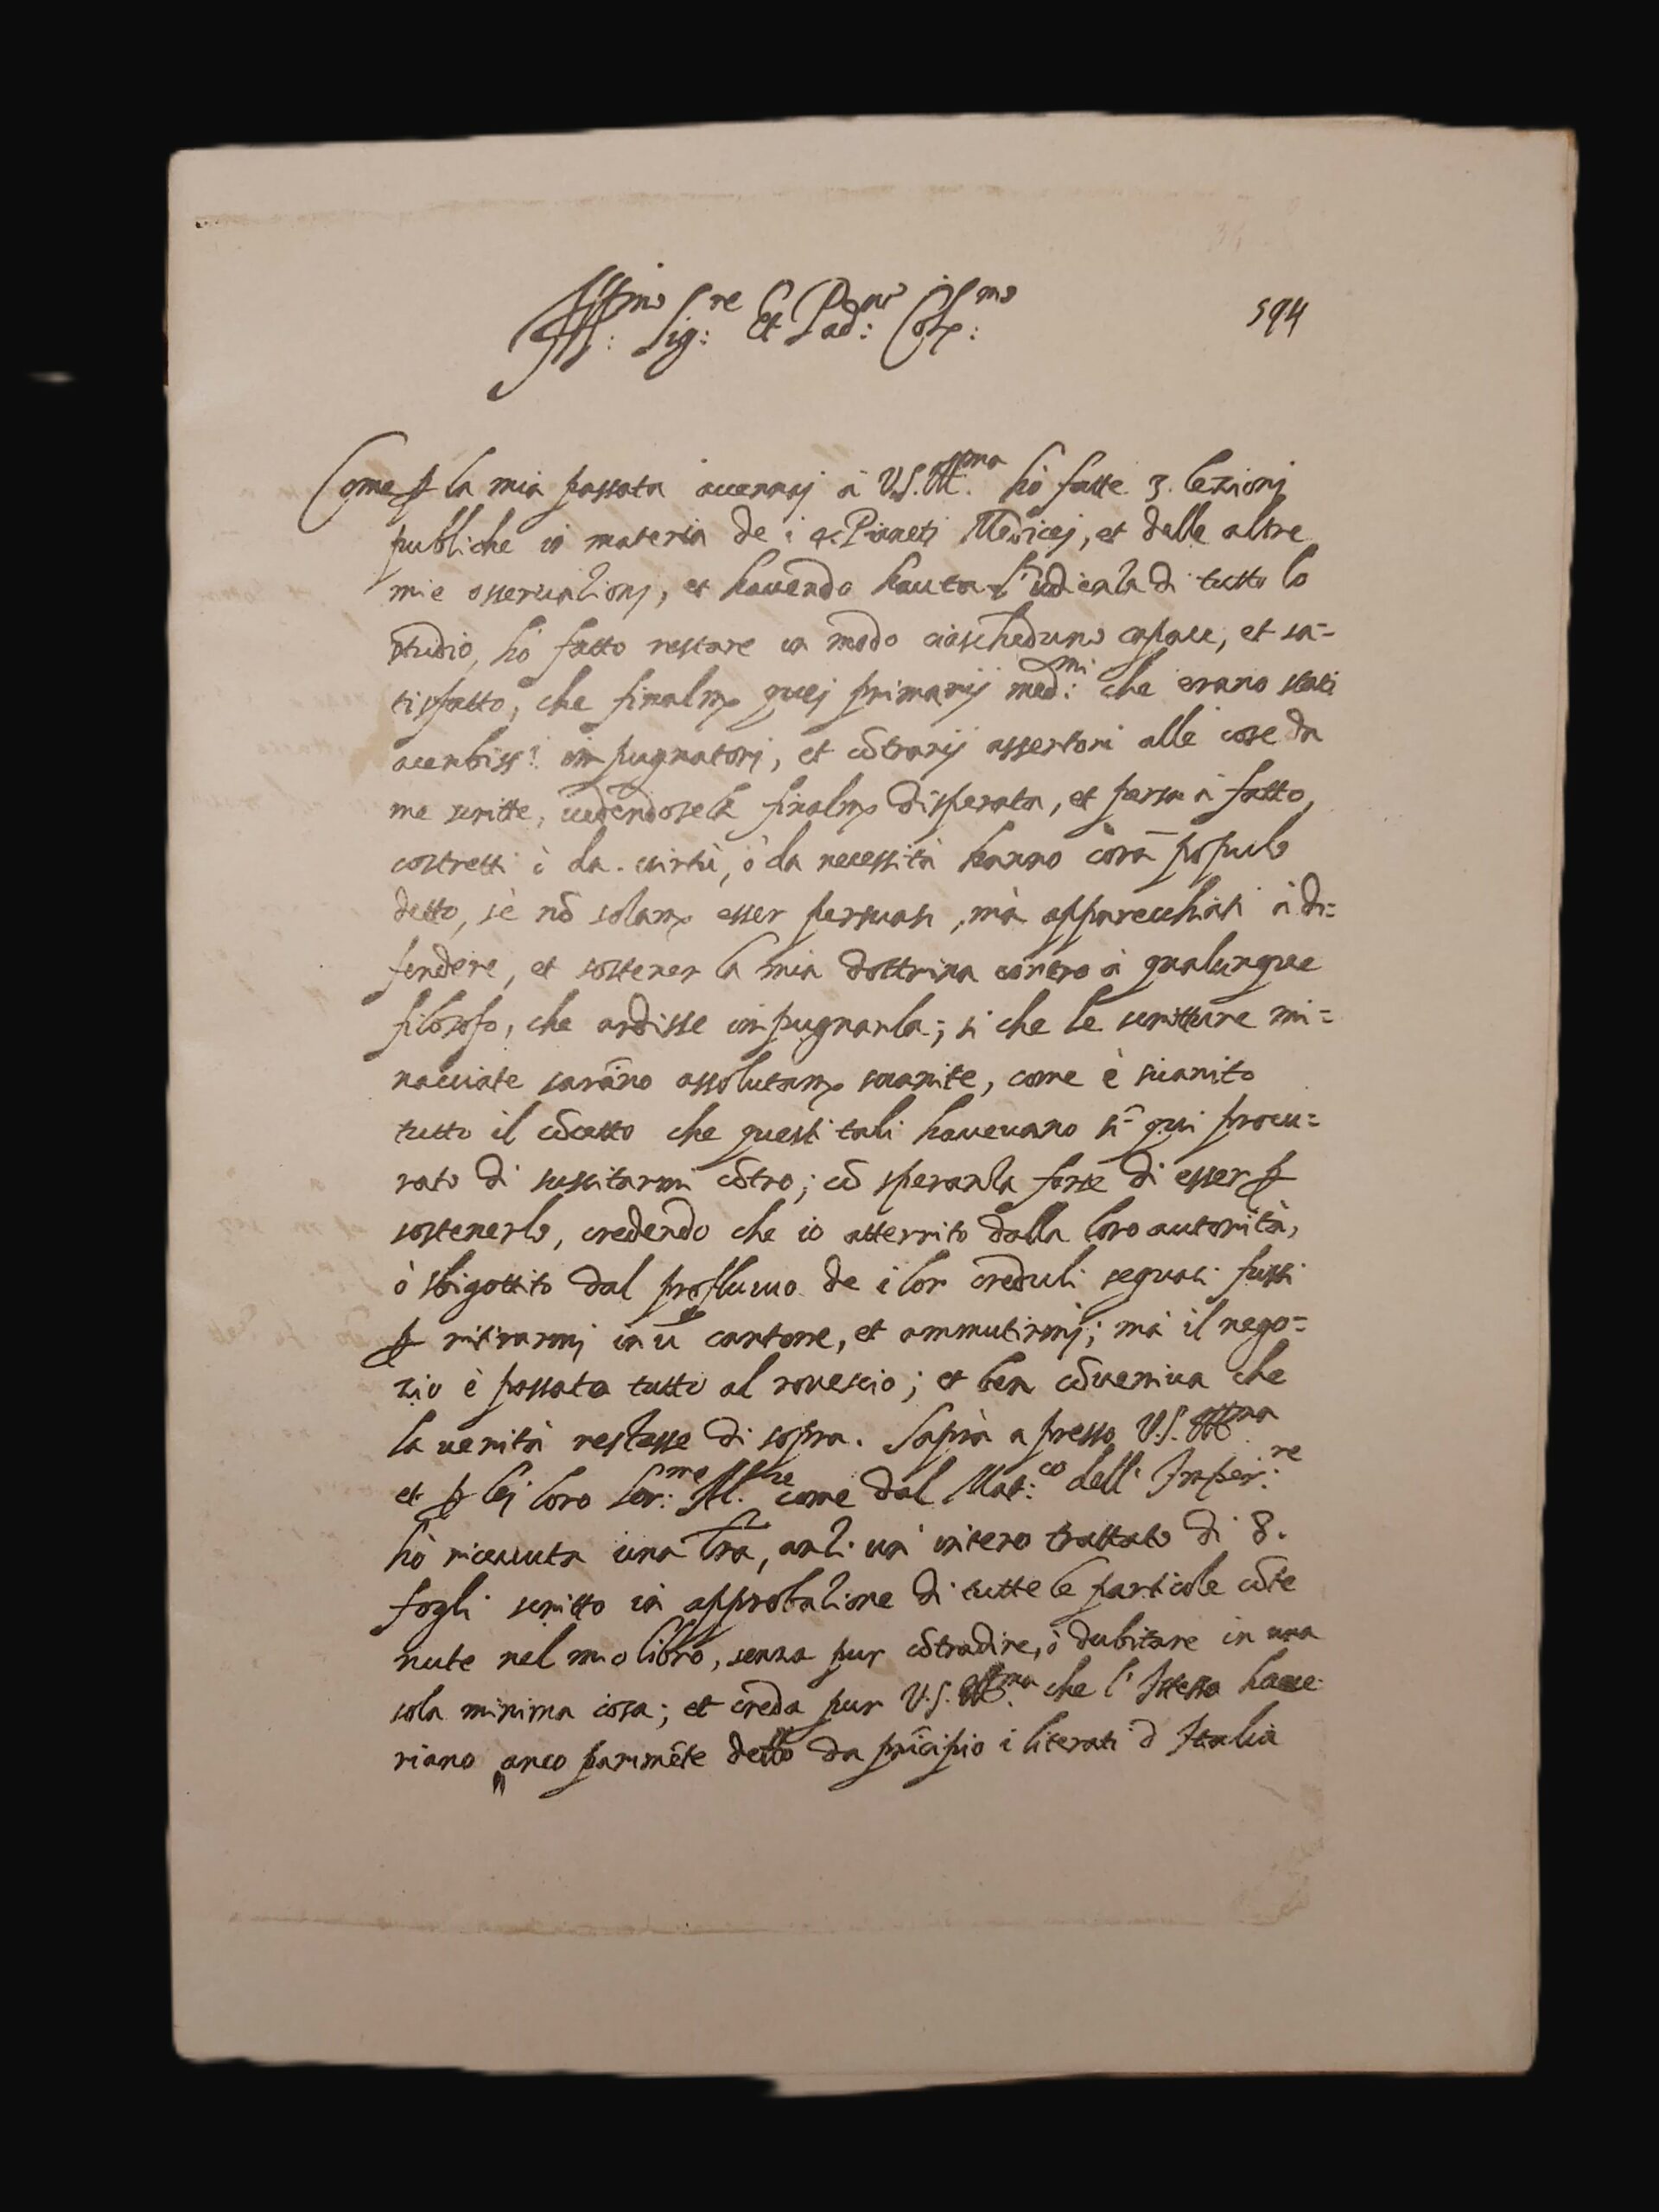 Ill:mo Sig:re Et Pad:ne Col:mo
594
Come p la mia passata accennaj à V.S. Ill.ma hò fatte 3. lezionj
publiche in materia de i 4. Pianeti Medicej, et delle altre
mie osservazionj, et havendo hauta l'udienza di tutto lo
studio, hò fatto restare in modo ciascheduno capace, et sa=
tisfatto, che finalm.e quej primarij med:mi che erano stati
acerbiss.i impugnatorj, et cõtrarij assertori alle cose da
me scritte, vedendosela finalm.e disperata, et persa à fatto,
costretti ò da virtù, ò da necessità hanno corã populo
detto, sè nõ solam.e esser persuasi, mà apparecchiati à di=
fendere, et sostener la mia dottrina contro à qualunque
filosofo, che ardisse impugnarla; si che le scritture mi=
nacciate sarãno assolutam.e svanite, come è svanito
tutto il cõcetto che questi tali havevano sĩ qui procu=
rato di suscitarmi cõtro; cõ speranza forse di esser p
sostenerlo, credendo che io atterrito dalla loro autorità,
ò sbigottito dal profluvio de i lor creduli seguaci fussi
p ritirarmj in ũ cantone, et ammutirmj; mà il nego=
zio è passato tutto al rovescio; et ben cõveniva che
la verità restasse di sopra. Saprà apresso V.S. Ill.ma
et p lej loro Ser:me Al.ze come dal Mat:co dell' Imper:re
hò ricevuta una lra, anzi un' intero trattato di 8.
fogli scritto in approbazione di tutte le particole cõte
nute nel mio libro, senza pur cõtradire, ò dubitare in una
sola minima cosa; et creda pur V.S. Ill.ma che l'istesso have
riano anco parimẽte detto da prĩcipio i literati d Italia